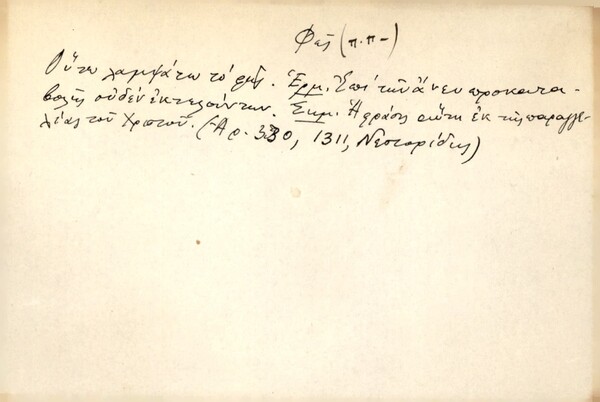 Φῶς (π.π-)
Οὕτω λαμψάτω τό φῶς. Ἑρμ. Ἐπί τῶν ἄνευ προκατα-
βολῆς οὐδέν ἐκτελούντων. Σημ. Ἡ φράσις αὕτη ἐκ τῆς παραγγε-
λίας τοῦ Χριστοῦ. (Ἀρ. 330, 1311, Νεστορίδης)